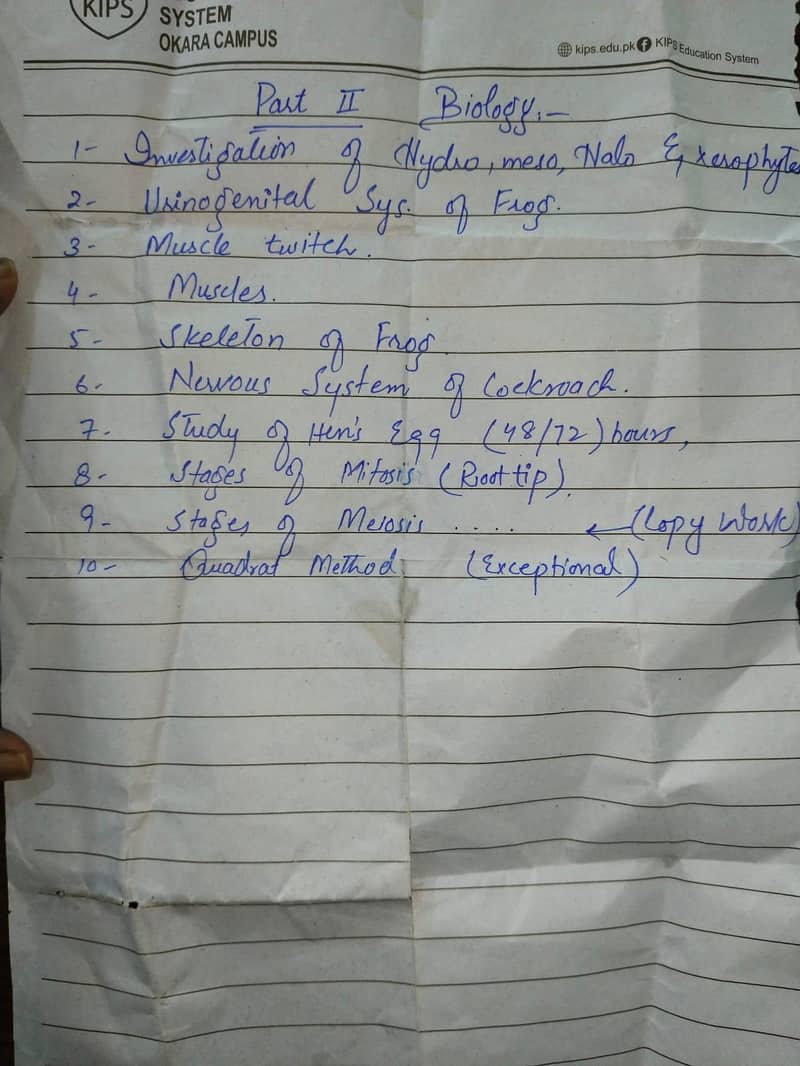 KIPS
SYSTEM
OKARA CAMPUS
kips.edu.pk KIPS Education System
Part II Biology:-
1- Investigation of Hydro, meso, Halo & xerophytes
2- Urinogenital Sys. of Frog.
3- Muscle twitch.
4- Muscles.
5- Skeleton of Frog.
6- Nervous System of Cockroach.
7- Study of Hen's Egg (48/72) hours,
8- Stages of Mitosis (Root tip).
9- Stages of Meiosis .... ← (Copy Work)
10- Quadrat Method. (Exceptional)